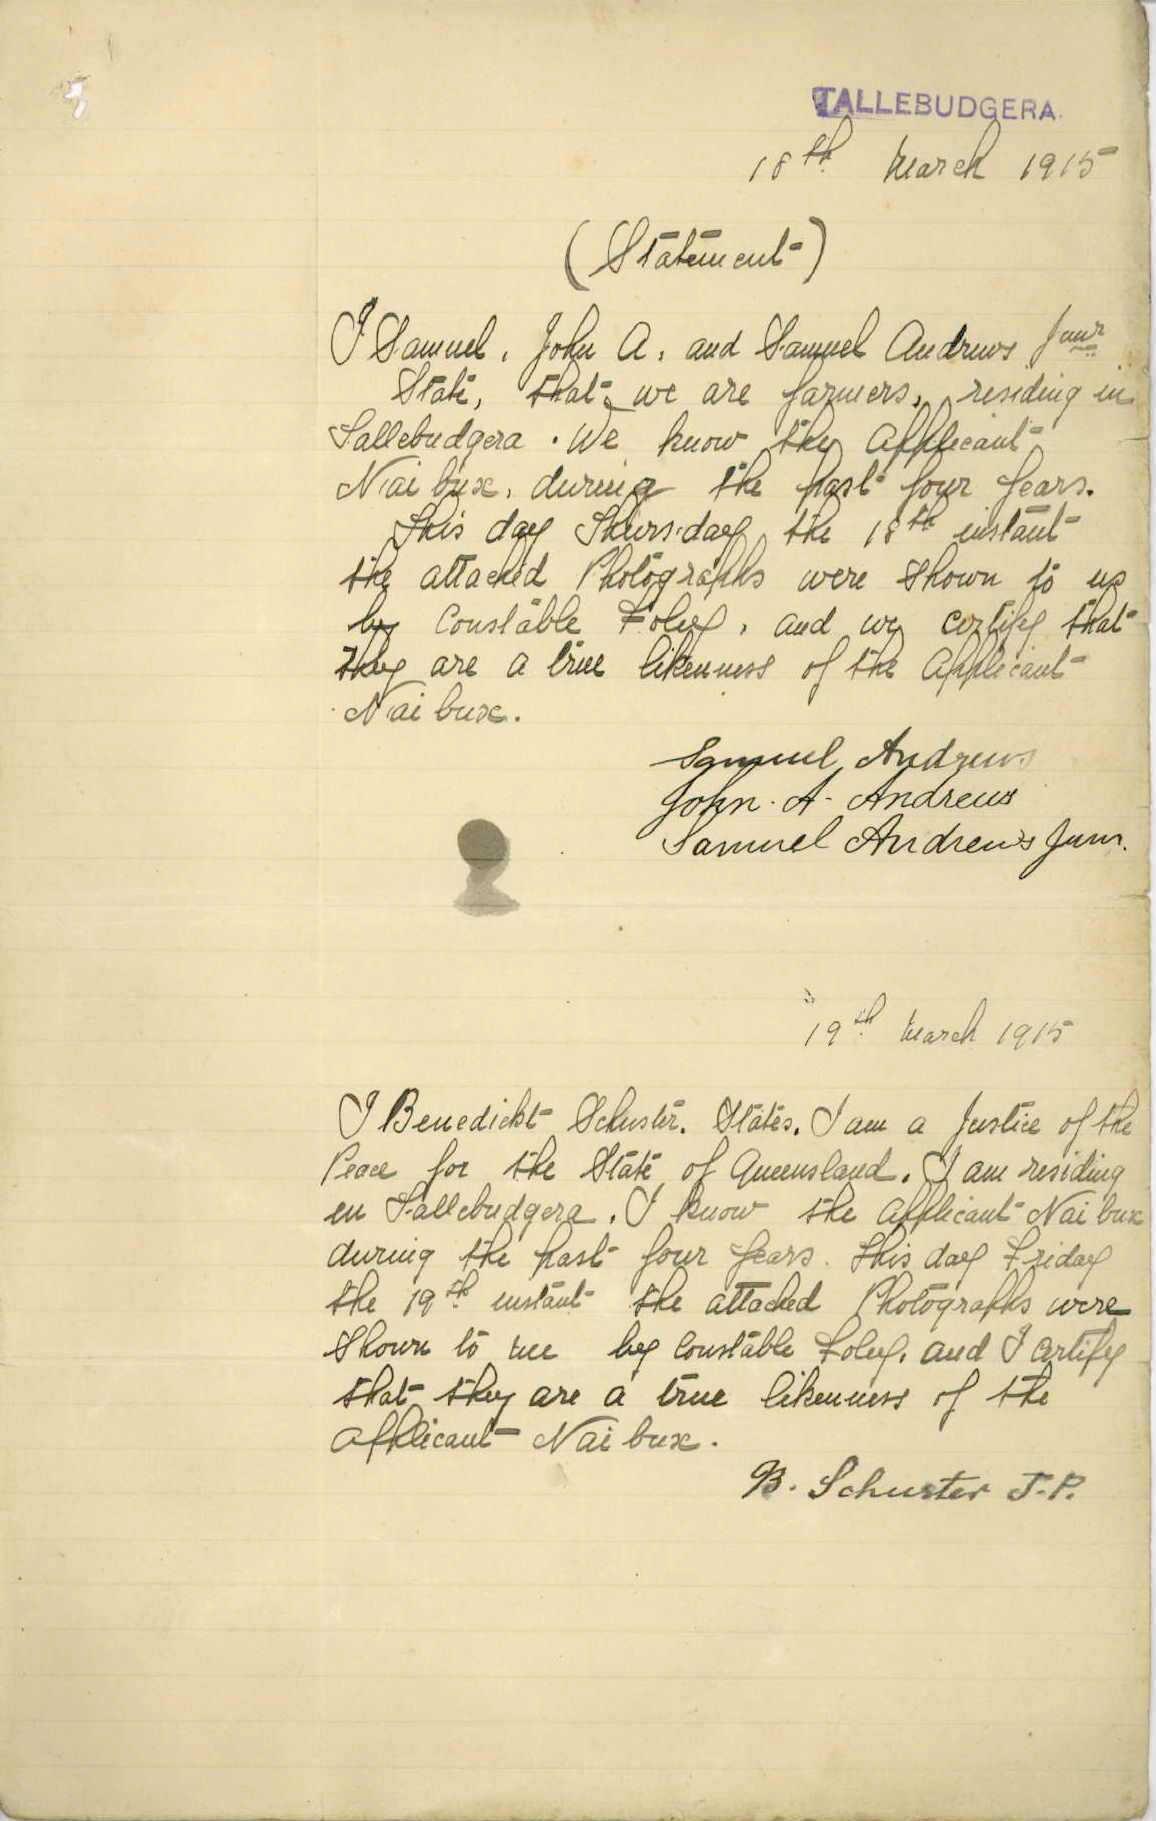 TALLEBUDGERA.
18th March 1915
(Statement)
I Samuel, John A, and Samuel Andrews Junr
State, that we are farmers, residing in
Tallebudgera. We know the applicant
Nai bux, during the past four years.
This day Thursday the 18th instant
the attached Photographs were shown to us
by Constable Foley, and we certify that
they are a true likenness of the applicant
Nai bux.
Samuel Andrews
John. A. Andrews
Samuel Andrews Junr.
19th March 1915
I Benedickt Schuster. States. I am a Justice of the
Peace for the State of Queensland. I am residing
in Tallebudgera. I know the applicant Nai bux
during the past four years. This day Friday
the 19th instant the attached Photographs were
Shown to me by Constable Foley, and I certify
that they are a true likenness of the
applicant Nai bux.
B. Schuster J.P.